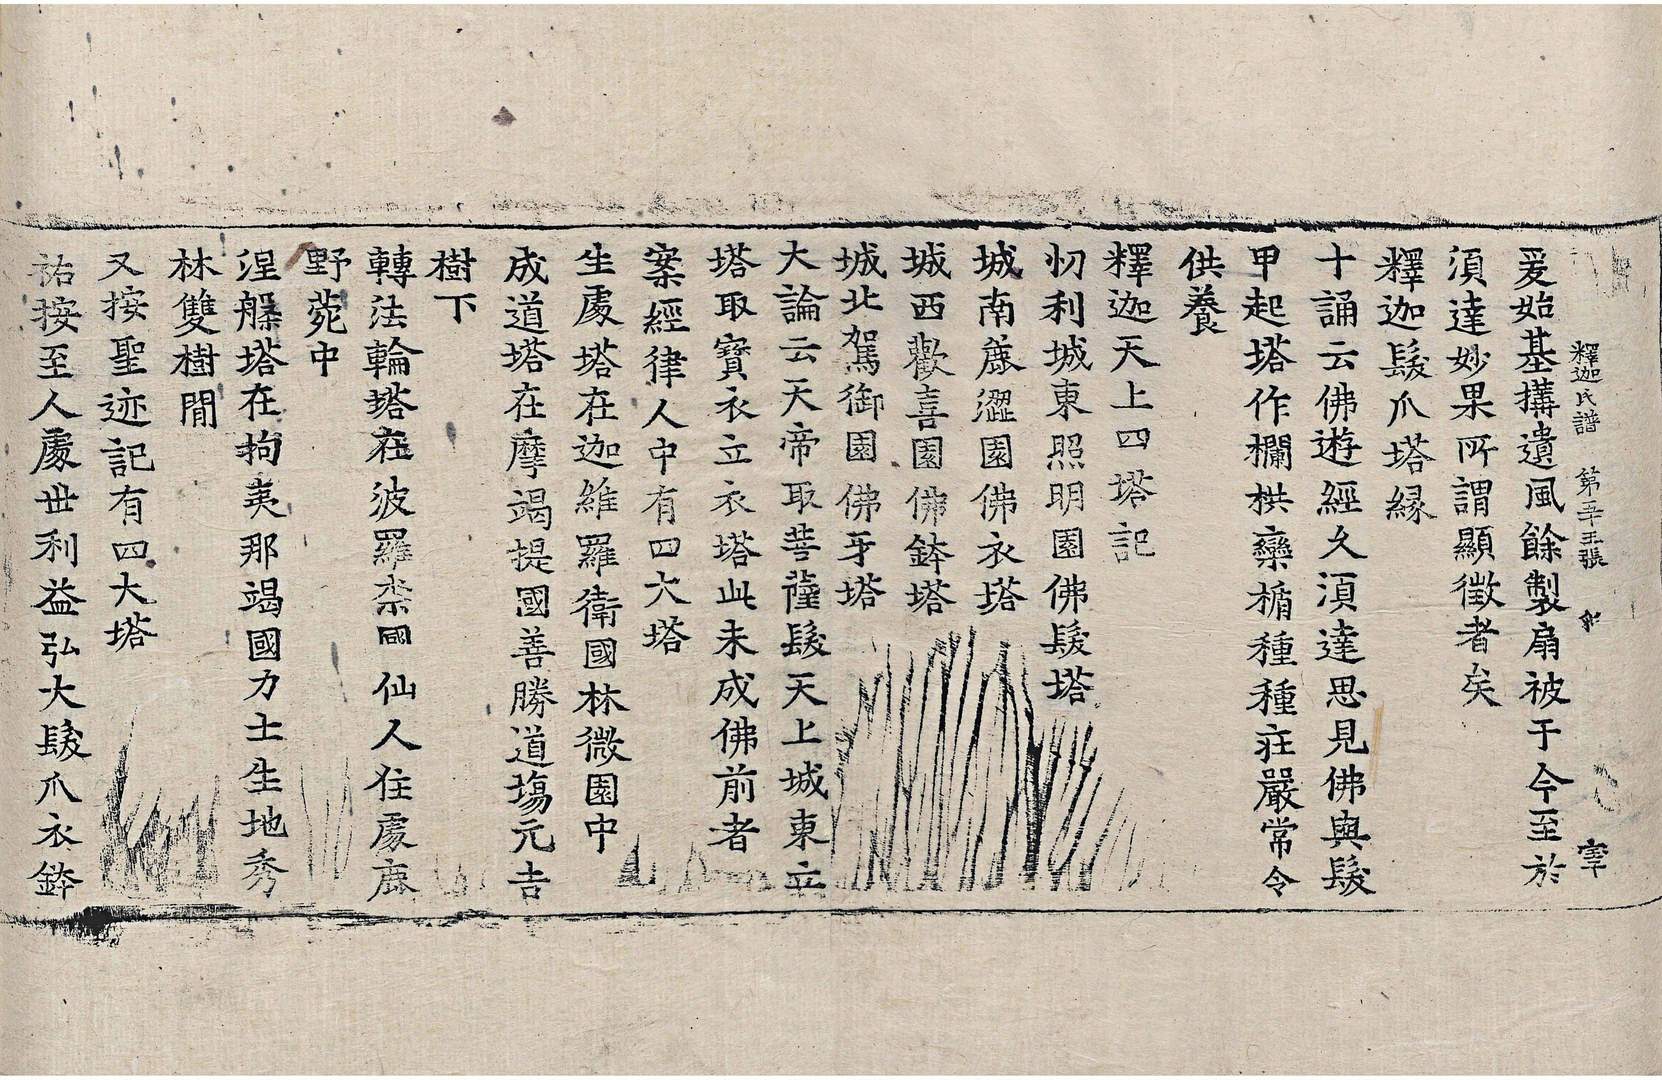 釋迦氏譜　第五十五張
爰始基搆遺風餘製扇被于今至於
須達妙果所謂顯徵者矣
釋迦髮爪塔緣
十誦云佛遊經久須達思見佛與髮
甲起塔作欄栱欒楯種種莊嚴常令
供養
釋迦天上四塔記
忉利城東照明園佛髮塔
城南麁澀園佛衣塔
城西歡喜園佛鉢塔
城北駕御園佛牙塔
大論云天帝取菩薩髮天上城東立
塔取寶衣立衣塔此未成佛前者
案經律人中有四大塔
生處塔在迦維羅衛國林微園中
成道塔在摩竭提國善勝道場元吉
樹下
轉法輪塔在波羅柰國仙人住處鹿
野菀中
涅槃塔在拘夷那竭國力士生地秀
林雙樹閒
又按聖迹記有四大塔
祐按至人處世利益弘大髮爪衣鉢